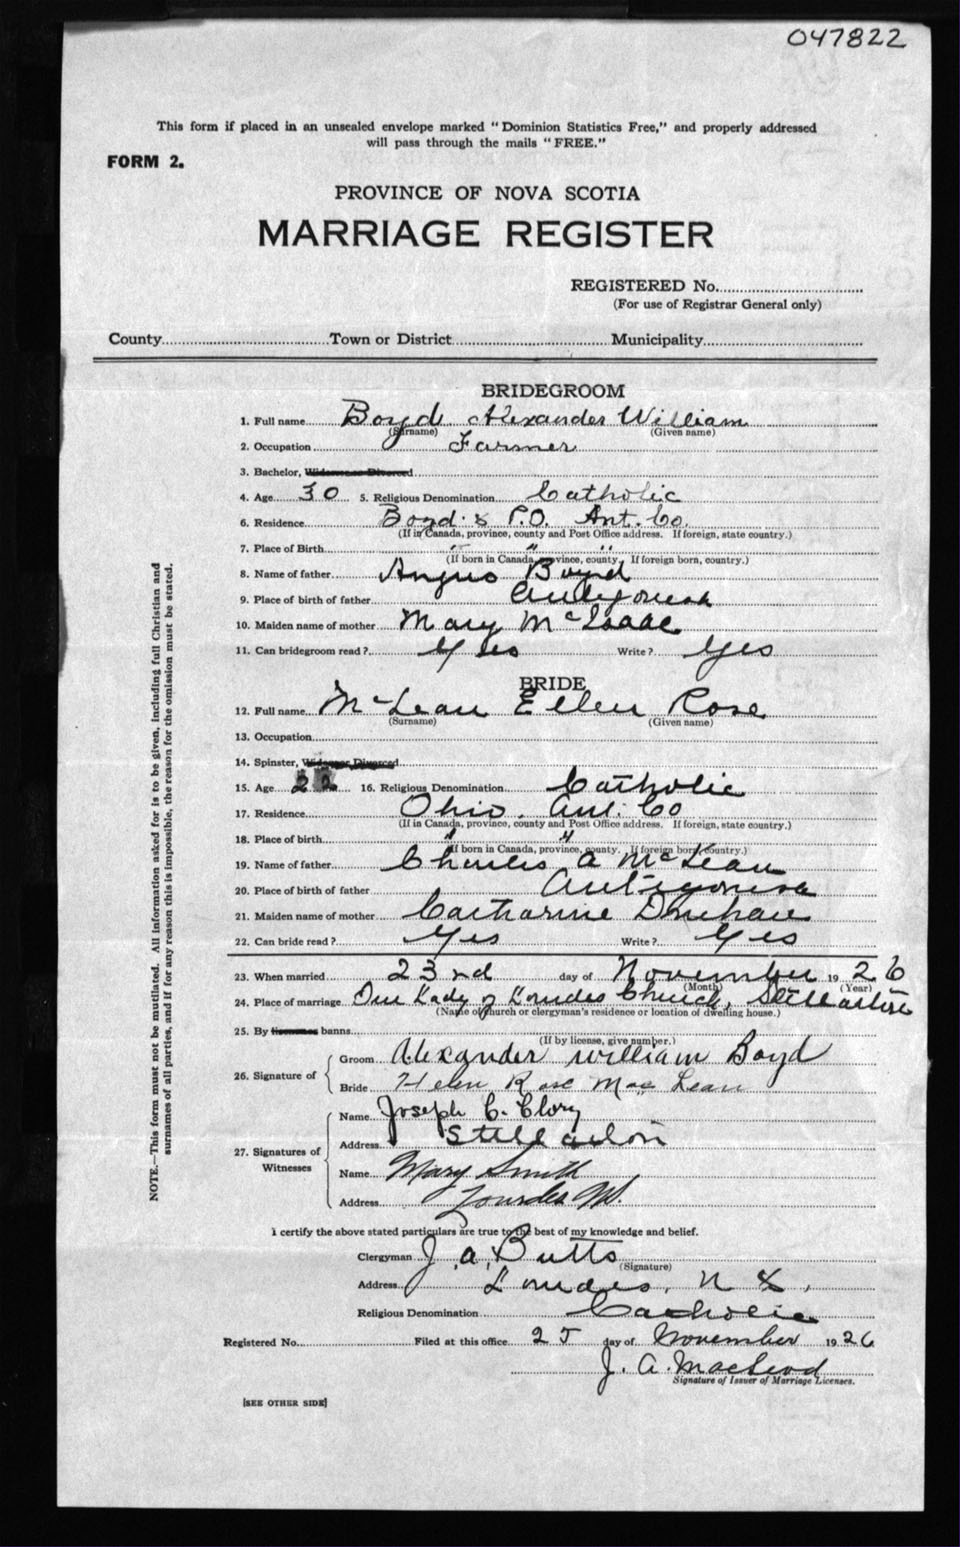 047822
This form if placed in an unsealed envelope marked "Dominion Statistics Free," and properly addressed
will pass through the mails "FREE."
FORM 2.
PROVINCE OF NOVA SCOTIA
MARRIAGE REGISTER
REGISTERED No.
(For use of Registrar General only)
County Town or District Municipality
BRIDEGROOM
1. Full name Boyd Alexander William
(Surname) (Given name)
2. Occupation Farmer
3. Bachelor, Widower or Divorced
4. Age 30 5. Religious Denomination Catholic
6. Residence Boyd's P.O. Ant. Co.
(If in Canada, province, county and Post Office address. If foreign, state country.)
7. Place of Birth " " "
(If born in Canada, province, county. If foreign born, country.)
8. Name of father Angus Boyd
9. Place of birth of father Antigonish
10. Maiden name of mother Mary McIsaac
11. Can bridegroom read? Yes Write? Yes
BRIDE
12. Full name McLean Ellen Rose
(Surname) (Given name)
13. Occupation
14. Spinster, Widow or Divorced
15. Age 16. Religious Denomination Catholic
17. Residence Ohio. Ant. Co
(If in Canada, province, county and Post Office address. If foreign, state country.)
18. Place of birth " "
(If born in Canada, province, county. If foreign born, country.)
19. Name of father Charles A McLean
20. Place of birth of father Antigonish
21. Maiden name of mother Catharine
22. Can bride read? Yes Write? Yes
23. When married 23rd day of November 1926
(Month) (Year)
24. Place of marriage Our Lady of Lourdes Church, Stellarton
(Name of church or clergyman's residence or location of dwelling house.)
25. By license banns
(If by license, give number.)
26. Signature of
Groom Alexander William Boyd
Bride Helen Rose MacLean
27. Signatures of Witnesses
Name Joseph C. Clory
Address Stellarton
Name Mary Smith
Address Lourdes
I certify the above stated particulars are true to the best of my knowledge and belief.
Clergyman J. A. Butts
(Signature)
Address Lourdes, N S,
Religious Denomination Catholic
Registered No. Filed at this office 25 day of November 1926
J. A. MacLeod
Signature of Issuer of Marriage Licenses.
[SEE OTHER SIDE]
NOTE.—This form must not be mutilated. All information asked for is to be given, including full Christian and
surnames of all parties, and if for any reason this is impossible, the reason for the omission must be stated.